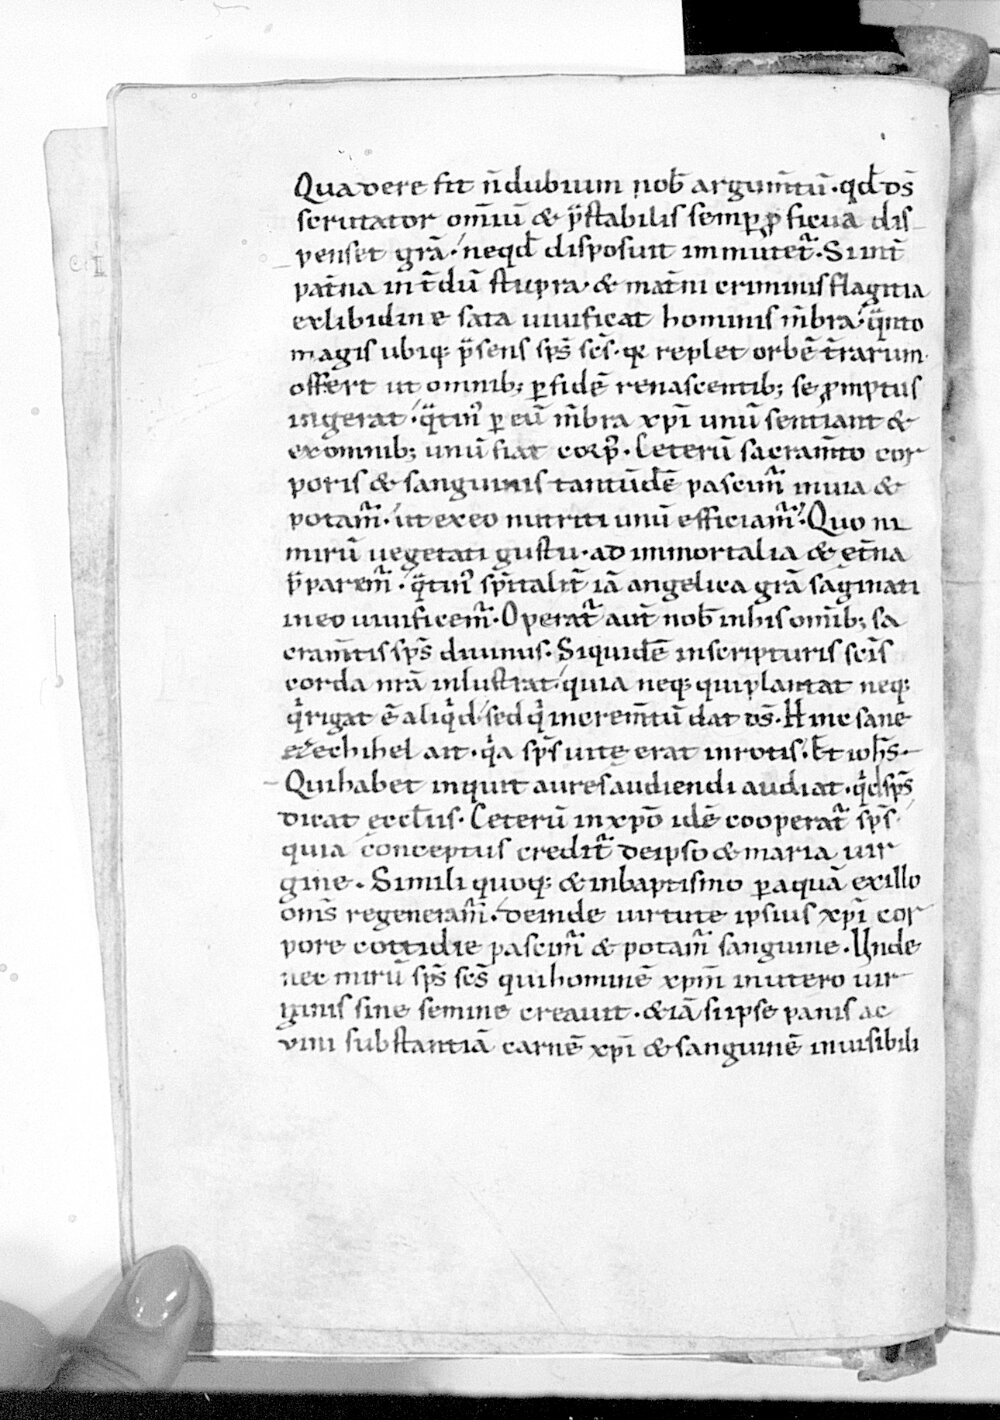 Qua vere fit ñ dubium nob̄ argum̄tū · qd̄ d̄s
scrutator om̄iū & p̄stabilis semp̱ ꝓficua dis
penset grā · neqd̄ disposuit immutet᷑ · Si int̄
pat̄na int̄dū stupra · & mat̄ni criminis flagitia
ex libidine sata vivificat hominis m̄bra · q̈nto
magis ubiq; p̄sens sp̄s sc̄s · qͥ replet orbē t̄rarum ·
offert ut omnib; ꝑ fidē renascentib; se ꝓmptus
ingerat · q̈tin᷒ ꝑ eū m̄bra xp̄i unū sentiant &
ex omnib; unū fiat corp᷒ · Ceterū sacram̄to cor
poris & sanguinis tantūdē pascim᷒ in via &
potam᷒ · ut ex eo nutriti unū efficiam᷒ · Quo ni
mirū vegetati gustu · ad immortalia & et̄na
p̄parem᷒ · q̈tin᷒ sp̄italit̄ iā angelica grā saginati
in eo vivificem᷒ · Operat᷑ aut̄ nob̄ in his om̄ib; sa
cram̄tis sp̄s divinus · Siquidē in scripturis sc̄is
corda nr̄a inlustrat · quia neq; qui plantat neq;
qͥ rigat ē aliqͥd · sed qͥ increm̄tū dat d̄s · Hinc sane
ezechihel ait · qͥa sp̄s vitę erat in rotis · Et ioh̄s ·
Qui habet inquit aures audiendi audiat · qͥd sp̄s
dicat eccl̄iis · Ceterū in xp̄o idē cooperat᷑ sp̄s ·
quia conceptus credit᷑ de ipso & maria vir
gine · Simili quoq; & in baptismo ꝑ aquā ex illo
om̄s regeneram᷒ · deinde virtute ipsius xp̄i cor
pore cottidie pascim᷒ & potam᷒ sanguine · Unde
nec mirū sp̄s sc̄s qui hominē xp̄m in utero vir
ginis sine semine creavit · & iā si ipse panis ac
vini substantiā carnē xp̄i & sanguinē invisibili